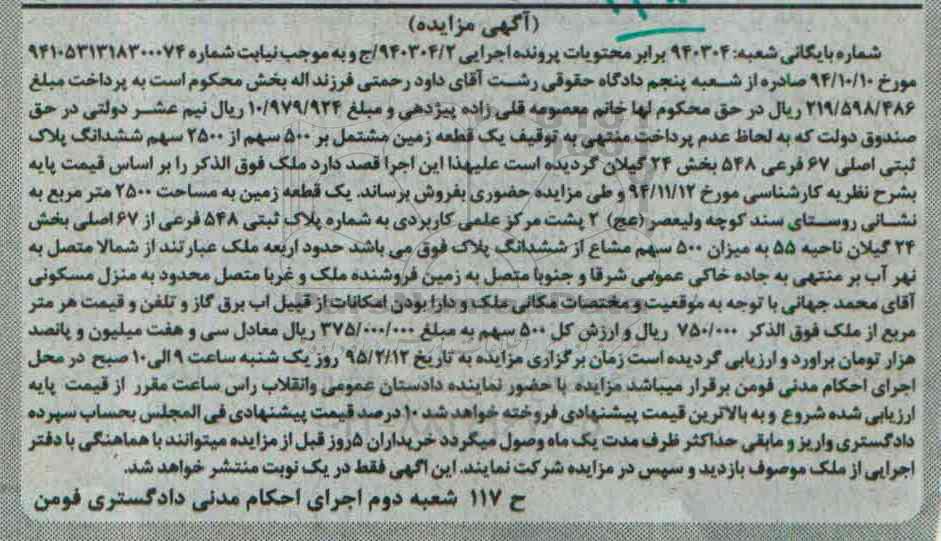 (آگهی مزایده)
شماره بایگانی شعبه: ۹۴۰۳۰۴ برابر محتویات پرونده اجرایی ۹۴۰۳۰۴/۲/ج و به موجب نیابت شماره ۹۴۱۰۵۳۱۳۱۸۳۰۰۰۷۴
مورخ ۹۴/۱۰/۱۰ صادره از شعبه پنجم دادگاه حقوقی رشت آقای داود رحمتی فرزند اله بخش محکوم است به پرداخت مبلغ
۲۱۹/۵۹۸/۴۸۶ ریال در حق محکوم لها خانم معصومه قلی زاده پیژدهی و مبلغ ۱۰/۹۷۹/۹۲۴ ریال نیم عشر دولتی در حق
صندوق دولت که به لحاظ عدم پرداخت منتهی به توقیف یک قطعه زمین مشتمل بر ۵۰۰ سهم از ۲۵۰۰ سهم ششدانگ پلاک
ثبتی اصلی ۶۷ فرعی ۵۴۸ بخش ۲۴ گیلان گردیده است علیهذا این اجرا قصد دارد ملک فوق الذکر را بر اساس قیمت پایه
بشرح نظریه کارشناسی مورخ ۹۴/۱۱/۱۲ و طی مزایده حضوری بفروش برساند. یک قطعه زمین به مساحت ۲۵۰۰ متر مربع به
نشانی روستای سند کوچه ولیعصر (عج) ۲ پشت مرکز علمی کاربردی به شماره پلاک ثبتی ۵۴۸ فرعی از ۶۷ اصلی بخش
۲۴ گیلان ناحیه ۵۵ به میزان ۵۰۰ سهم مشاع از ششدانگ پلاک فوق می باشد حدود اربعه ملک عبارتند از شمالا متصل به
نهر آب بر منتهی به جاده خاکی عمومی شرقا و جنوبا متصل به زمین فروشنده ملک و غربا متصل محدود به منزل مسکونی
آقای محمد جهانی با توجه به موقعیت و مختصات مکانی ملک و دارا بودن امکانات از قبیل اب برق گاز و تلفن و قیمت هر متر
مربع از ملک فوق الذکر ۷۵۰/۰۰۰ ریال و ارزش کل ۵۰۰ سهم به مبلغ ۳۷۵/۰۰۰/۰۰۰ ریال معادل سی و هفت میلیون و پانصد
هزار تومان براورد و ارزیابی گردیده است زمان برگزاری مزایده به تاریخ ۹۵/۲/۱۲ روز یک شنبه ساعت ۹ الی ۱۰ صبح در محل
اجرای احکام مدنی فومن برقرار میباشد مزایده با حضور نماینده دادستان عمومی وانقلاب راس ساعت مقرر از قیمت پایه
ارزیابی شده شروع و به بالاترین قیمت پیشنهادی فروخته خواهد شد ۱۰ درصد قیمت پیشنهادی فی المجلس بحساب سپرده
دادگستری واریز و مابقی حداکثر ظرف مدت یک ماه وصول میگردد خریداران ۵روز قبل از مزایده میتوانند با هماهنگی با دفتر
اجرایی از ملک موصوف بازدید و سپس در مزایده شرکت نمایند. این اگهی فقط در یک نوبت منتشر خواهد شد.
ح ۱۱۷ شعبه دوم اجرای احکام مدنی دادگستری فومن